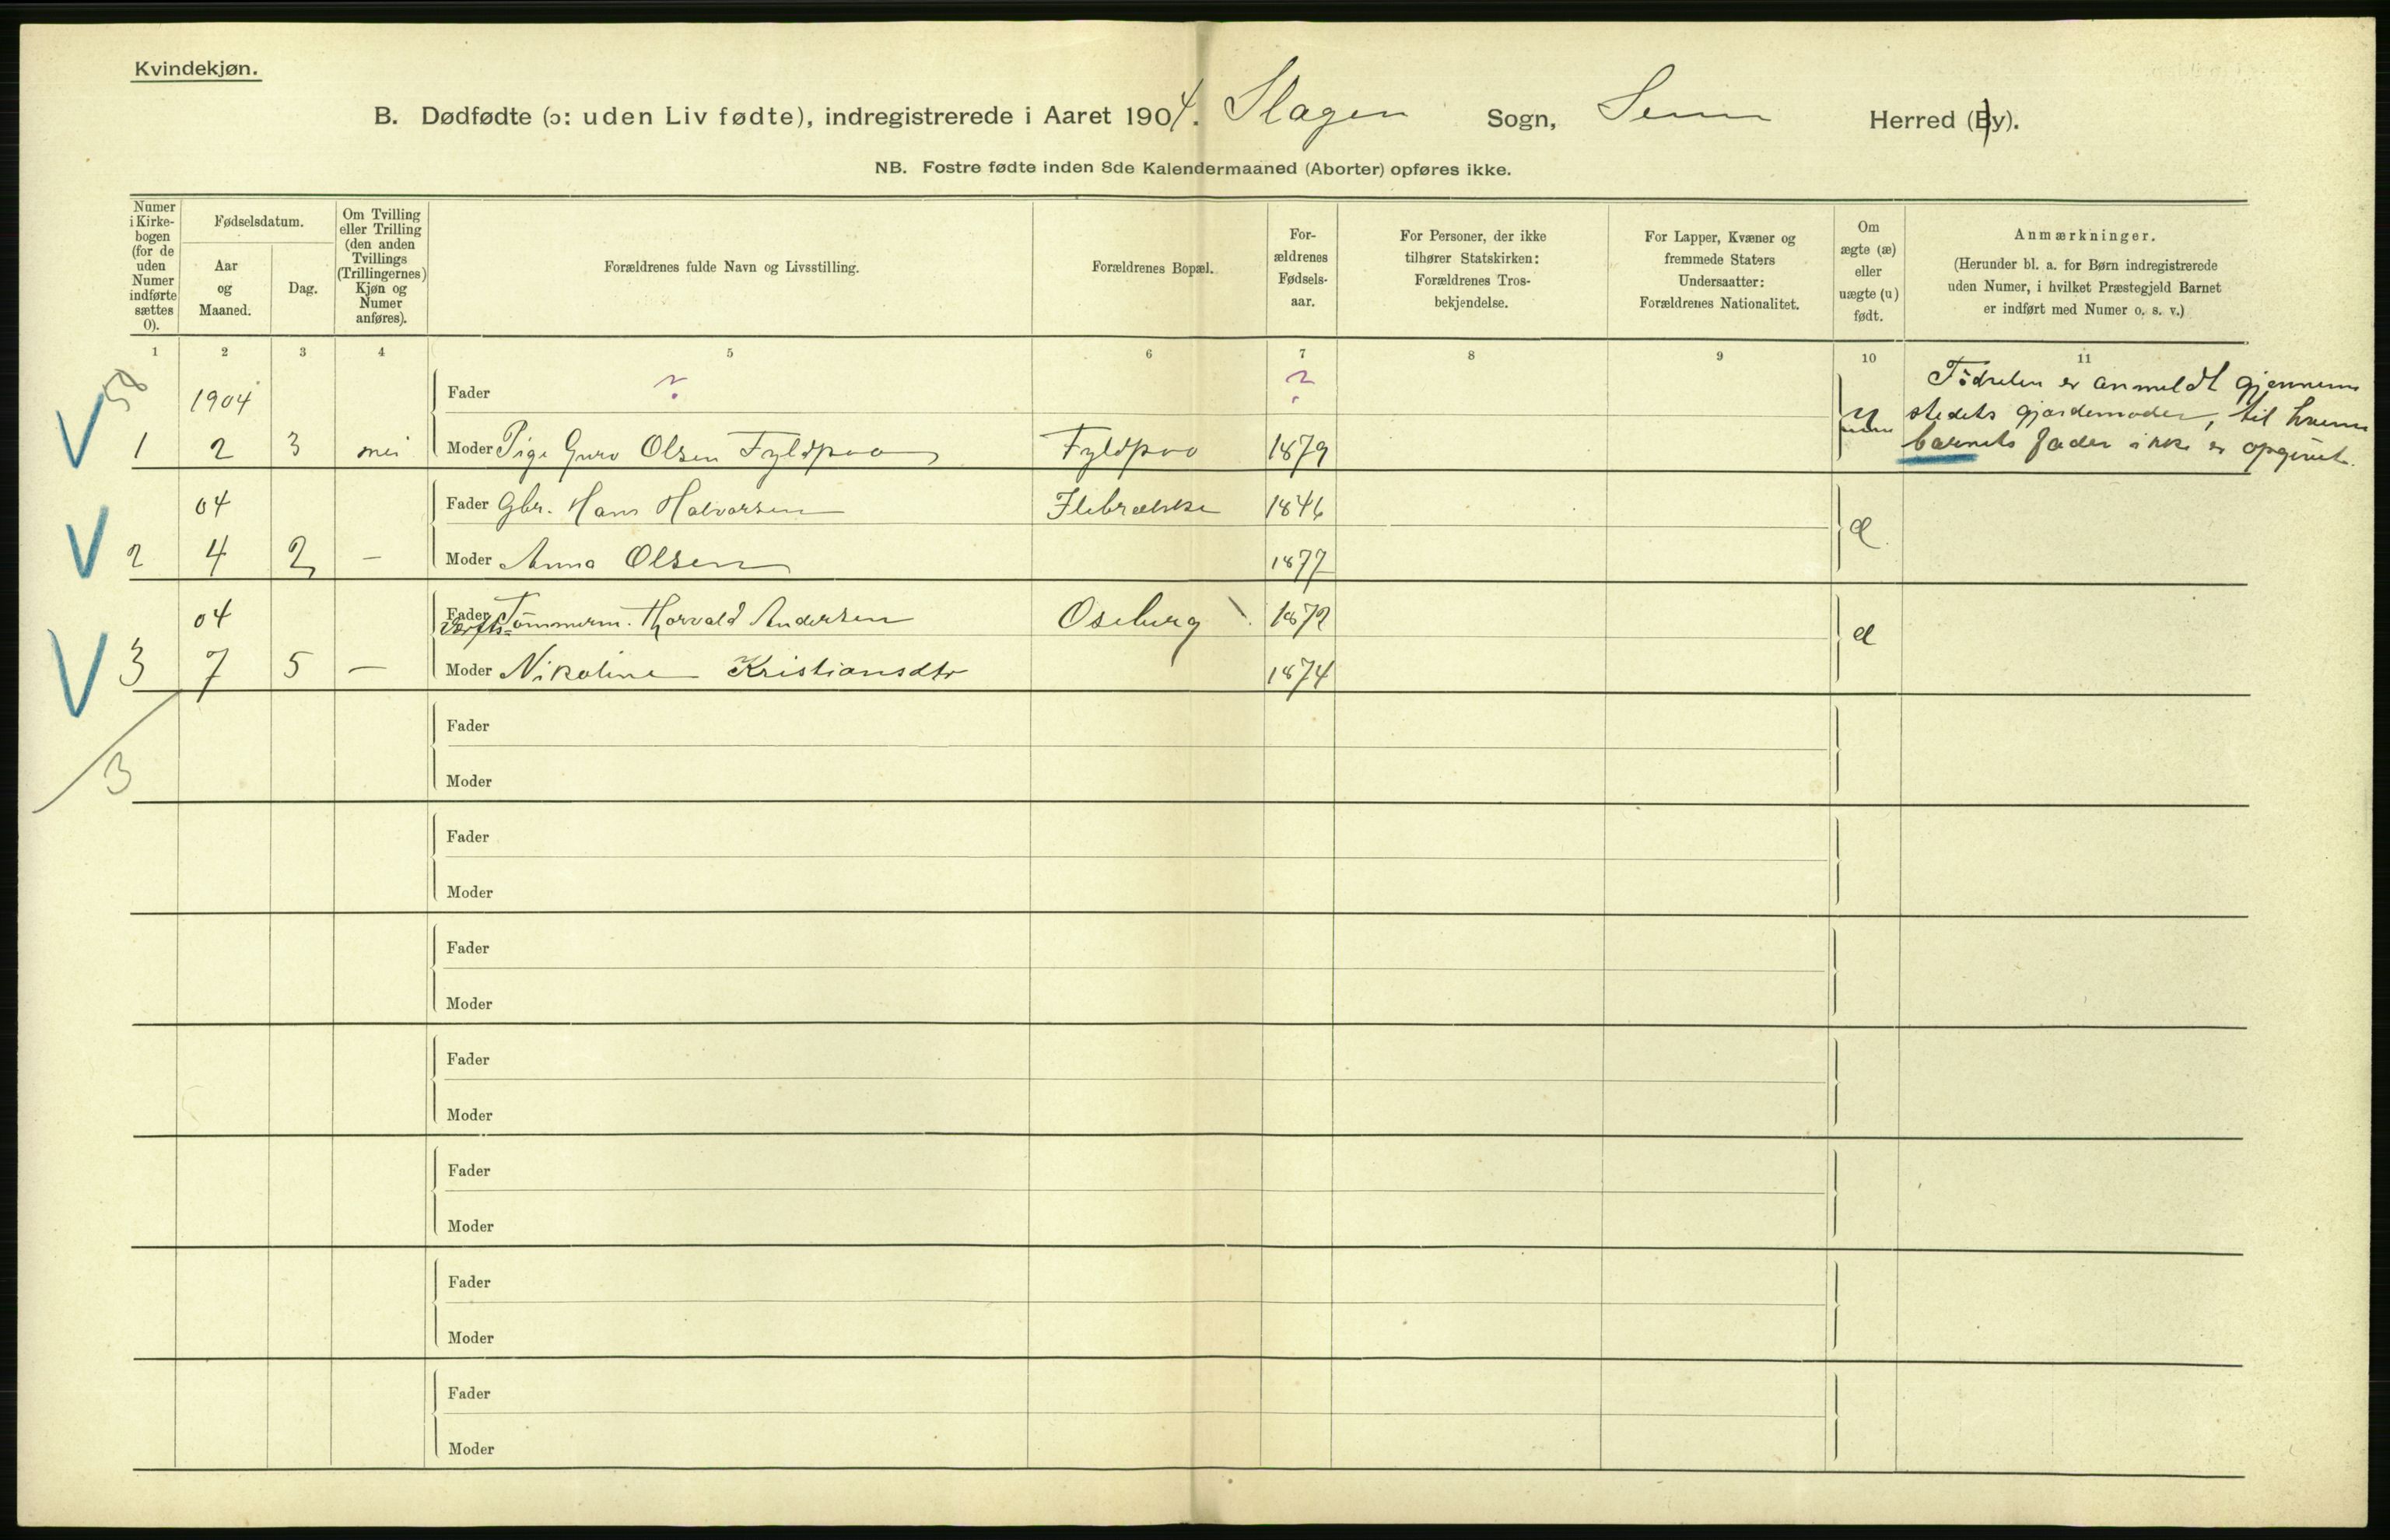 Kvindekjøn.
B. Dødfødte (ɔ: uden Liv fødte), indregistrerede i Aaret 1904. Slagen Sogn, Sem Herred (By).
NB. Fostre fødte inden 8de Kalendermaaned (Aborter) opføres ikke.
Numer
i Kirke-
bogen
(for de
uden
Numer
indførte
sættes
0).
Fødselsdatum.
Aar
og
Maaned.
Dag.
Om Tvilling
eller Trilling
(den anden
Tvillings
(Trillingernes)
Kjøn og
Numer
anføres).
Forældrenes fulde Navn og Livsstilling.
Forældrenes Bopæl.
For-
ældrenes
Fødsels-
aar.
For Personer, der ikke
tilhører Statskirken:
Forældrenes Tros-
bekjendelse.
For Lapper, Kvæner og
fremmede Staters
Undersaatter:
Forældrenes Nationalitet.
Om
ægte (æ)
eller
uægte (u)
født.
Anmærkninger.
(Herunder bl. a. for Børn indregistrerede
uden Numer, i hvilket Præstegjeld Barnet
er indført med Numer o. s. v.)
1 2 3 4 5 6 7 8 9 10 11
58
1904 Fader ? ?
V 1 2 3 nei Moder Pige Guro Olsen Fyldpaa Fyldpaa 1879 u
Födselen er anmeldt gjennem
stedets gjordemoder, til hvem
barnets fader ikke er opgivet.
04 Fader Gbr. Hans Halvorsen Ilebrække 1846 æ
V 2 4 2 — Moder Anna Olsen 1877
04 Fader Værfts- Tømmerm. Thorvald Andersen Oseberg 1872 æ
V 3 7 5 — Moder Nikoline Kristiansdtr 1874
3
Fader
Moder
Fader
Moder
Fader
Moder
Fader
Moder
Fader
Moder
Fader
Moder
Fader
Moder